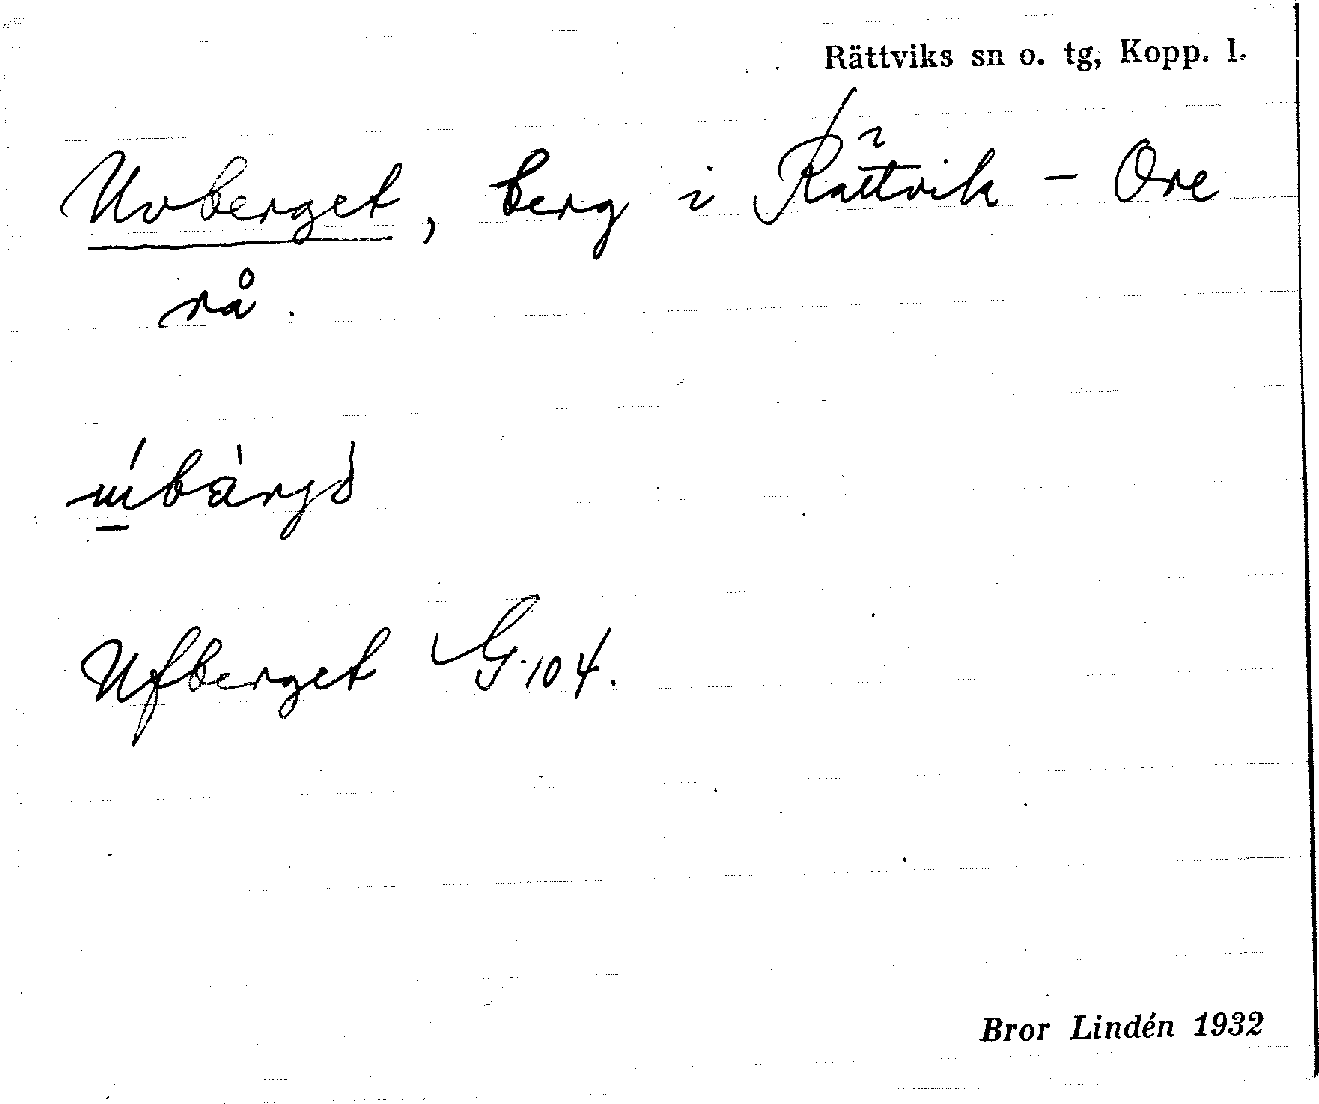 Rättviks sn o. tg, Kopp. l.
Uvberget, berg i Rättvik - Ore
rå.
Ufberget G 104.
Bror Lindén 1932